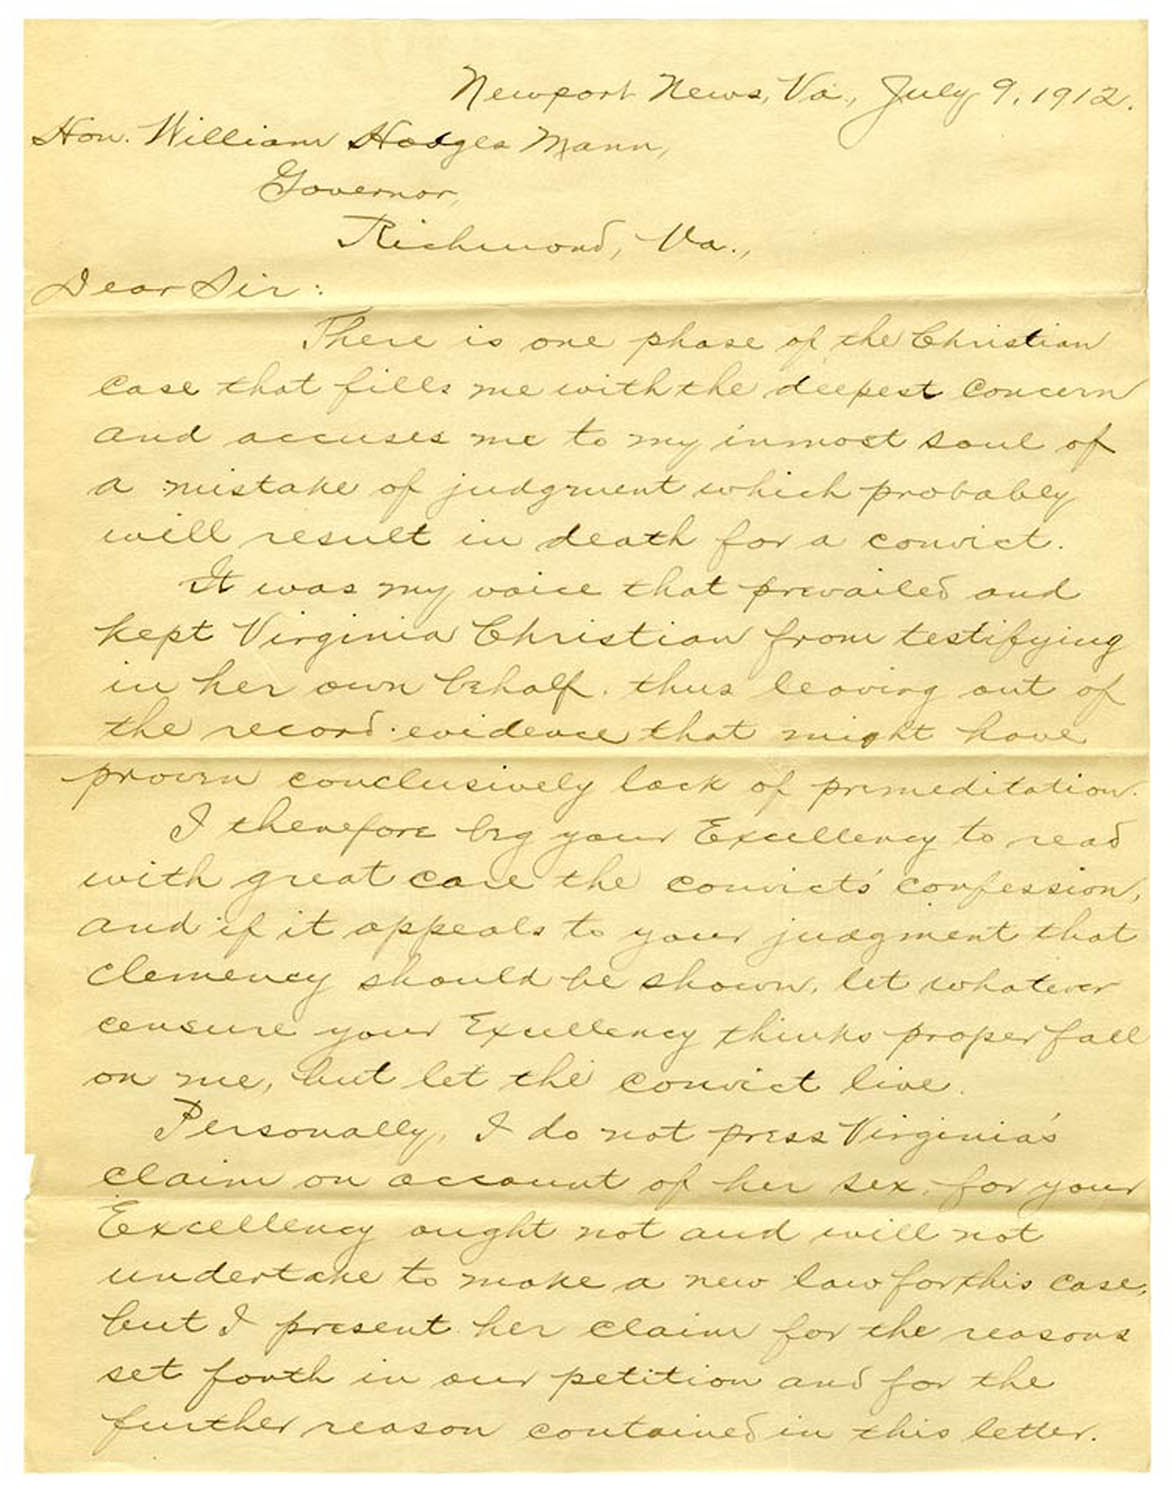 Newport News, Va., July 9, 1912.
Hon. William Hodges Mann,
Governor,
Richmond, Va.,
Dear Sir:
There is one phase of the Christian
case that fills me with the deepest concern
and accuses me to my inmost soul of
a mistake of judgment which probably
will result in death for a convict.
It was my voice that prevailed and
kept Virginia Christian from testifying
in her own behalf, thus leaving out of
the record evidence that might have
proven conclusively lack of premeditation.
I therefore beg your Excellency to read
with great care the convicts' confession,
and if it appeals to your judgment that
clemency should be shown, let whatever
censure your Excellency thinks proper fall
on me, but let the convict live.
Personally, I do not press Virginia's
claim on account of her sex, for your
Excellency ought not and will not
undertake to make a new law for this case,
but I present her claim for the reasons
set forth in our petition and for the
further reason contained in this letter.